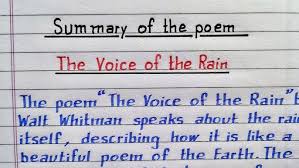 Summary of the poem
The Voice of the Rain
The poem "The Voice of the Rain"
Walt Whitman speaks about the rai
itself, describing how it is like a
beautiful poem of the Earth. The